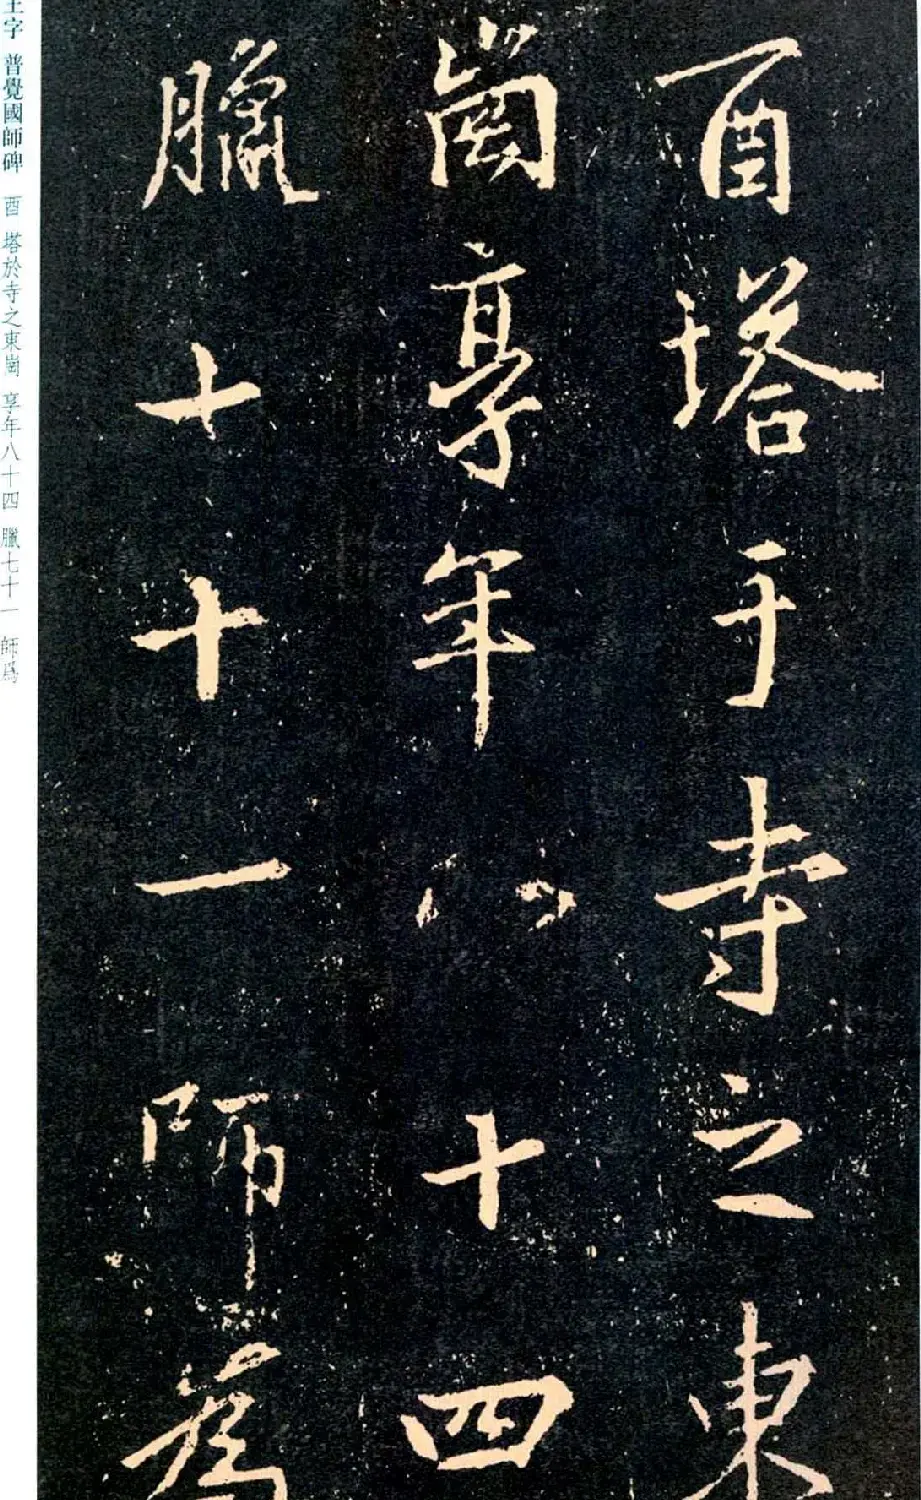 酉塔于寺之東
崗享年八十四
臘七十一師爲
王字 普覺國師碑 酉 塔於寺之東崗 享年八十四 臘七十一 師爲